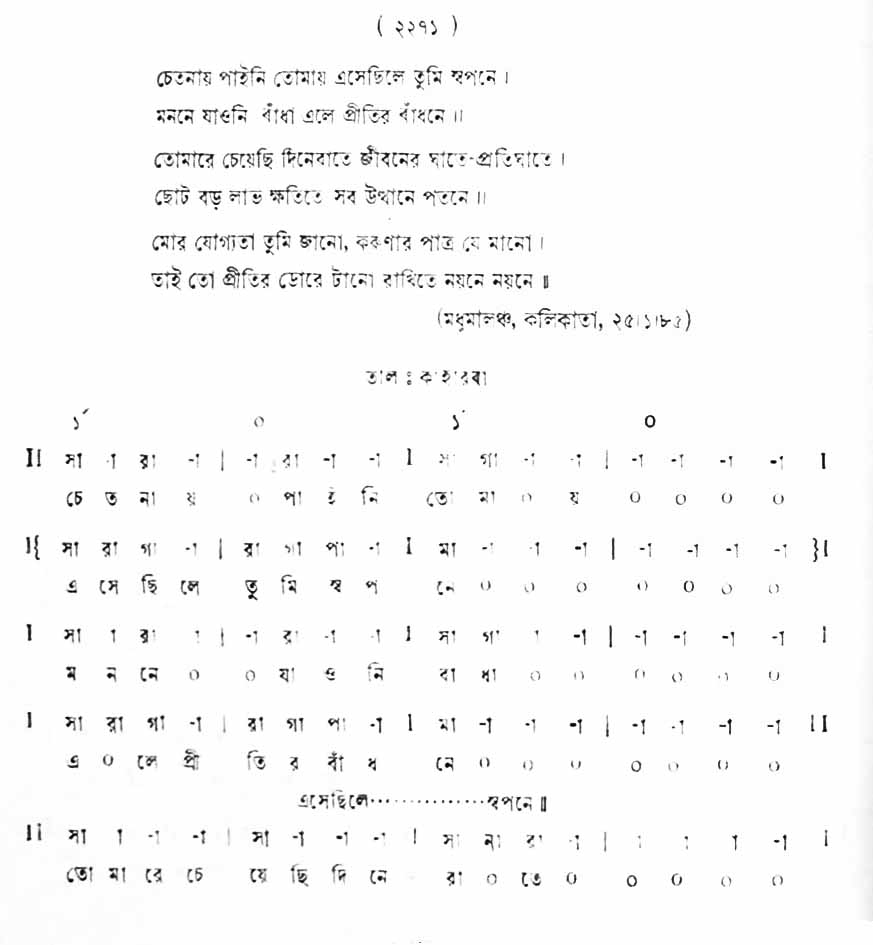 ( ২২৭১ )
চেতনায় পাইনি তোমায় এসেছিলে তুমি স্বপনে ।
মননে যাওনি বাঁধা এলে প্রীতির বাঁধনে ॥
তোমারে চেয়েছি দিনেরাতে জীবনের ঘাতে-প্রতিঘাতে ।
ছোট বড় লাভ ক্ষতিতে সব উত্থানে পতনে ॥
মোর যোগ্যতা তুমি জানো, করুণার পাত্র যে মানো ।
তাই তো প্রীতির ডোরে টানো রাখিতে নয়নে নয়নে ॥
(মধুমালঞ্চ, কলিকাতা, ২৫।১।৮৫)
তাল ঃ কাহারবা
১´ ০ ১´ ০
II সা -া রা -া | -া রা -া -া I সা গা -া -া | -া -া -া -া I
চে ত না য় ০ পা ই নি তো মা ০ য় ০ ০ ০ ০
I{ সা রা গা -া | রা গা পা -া I মা -া -া -া | -া -া -া -া }I
এ সে ছি লে তু মি স্ব প নে ০ ০ ০ ০ ০ ০ ০
I সা া রা া | -া রা -া -া I সা গা া -া | -া -া -া -া I
ম ন নে ০ ০ যা ও নি বা ধা ০ ০ ০ ০ ০ ০
I সা রা গা -া | রা গা পা -া I মা -া -া -া | -া -া -া -া II
এ ০ লে প্রী তি র বাঁ ধ নে ০ ০ ০ ০ ০ ০ ০
এসেছিলে················স্বপনে ॥
II সা া -া -া | সা -া -া -া I সা না রা -া | া া া -া I
তো মা রে চে য়ে ছি দি নে রা ০ তে ০ ০ ০ ০ ০